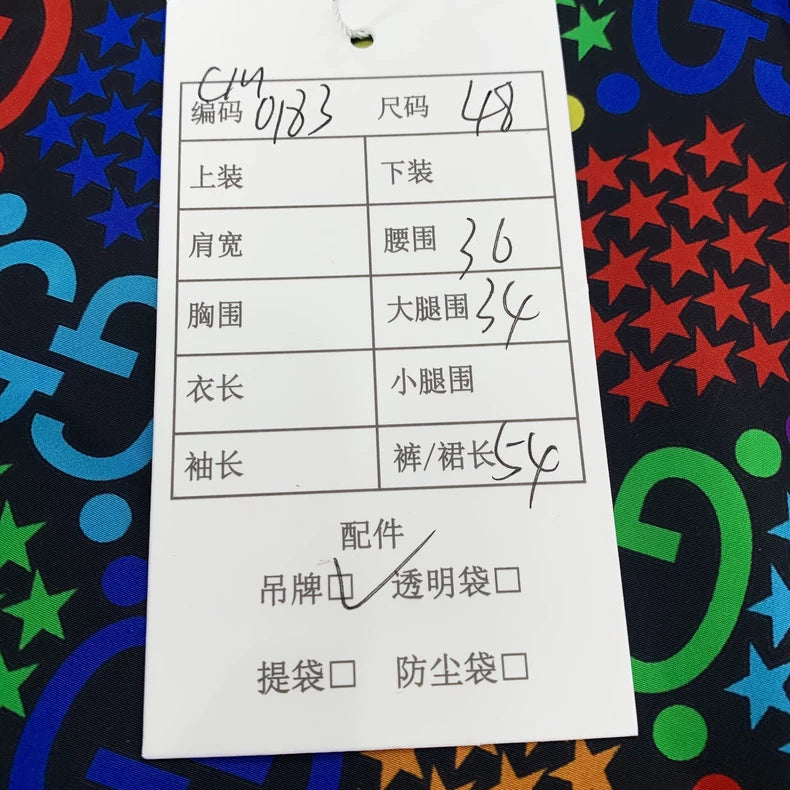 C14
编码 0183 尺码 48
上装 下装
肩宽 腰围 36
胸围 大腿围 34
衣长 小腿围
袖长 裤/裙长 54
配件
吊牌☑ 透明袋□
提袋□ 防尘袋□